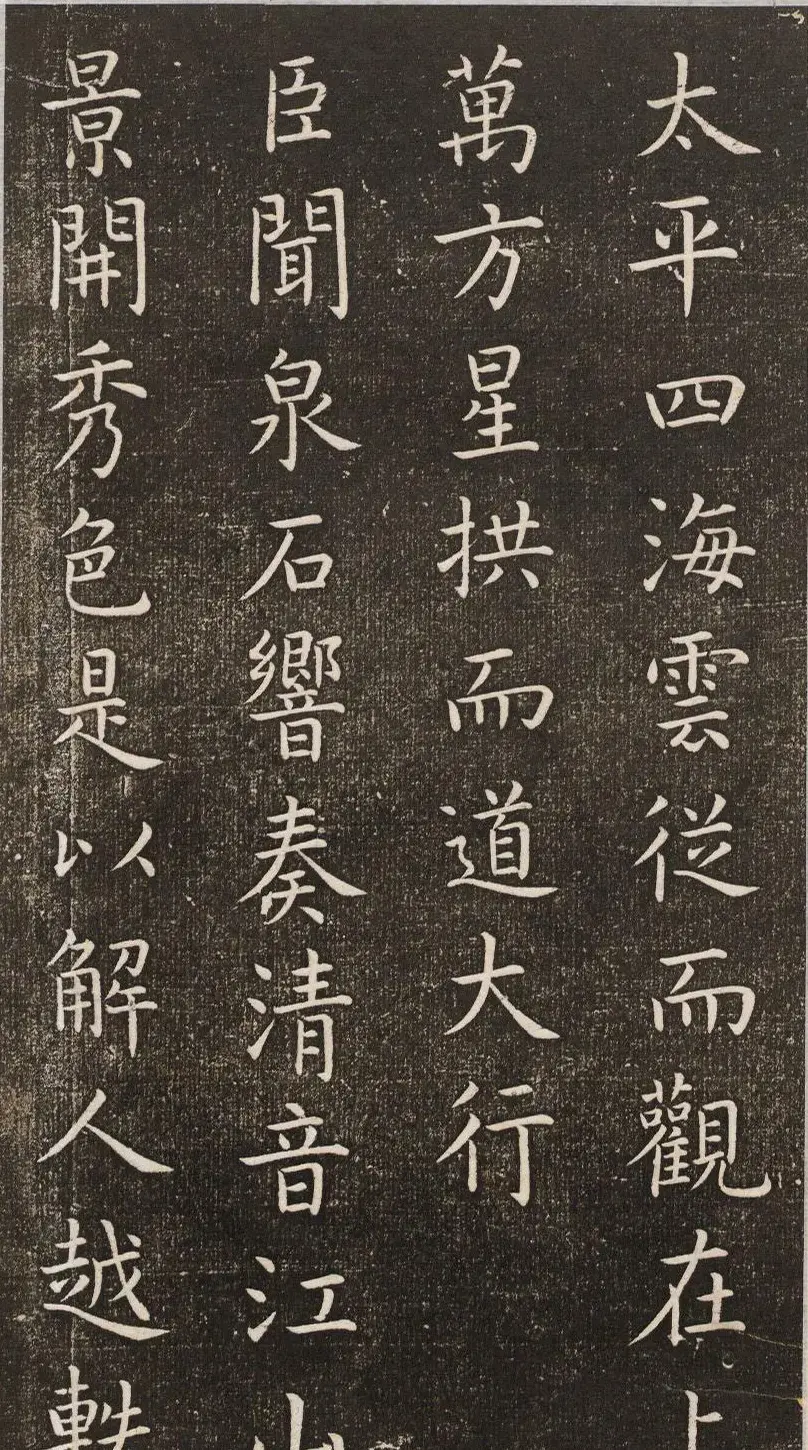 太平四海雲從而觀在上
萬方星拱而道大行
臣聞泉石響奏清音江山
景開秀色是以解人越軼